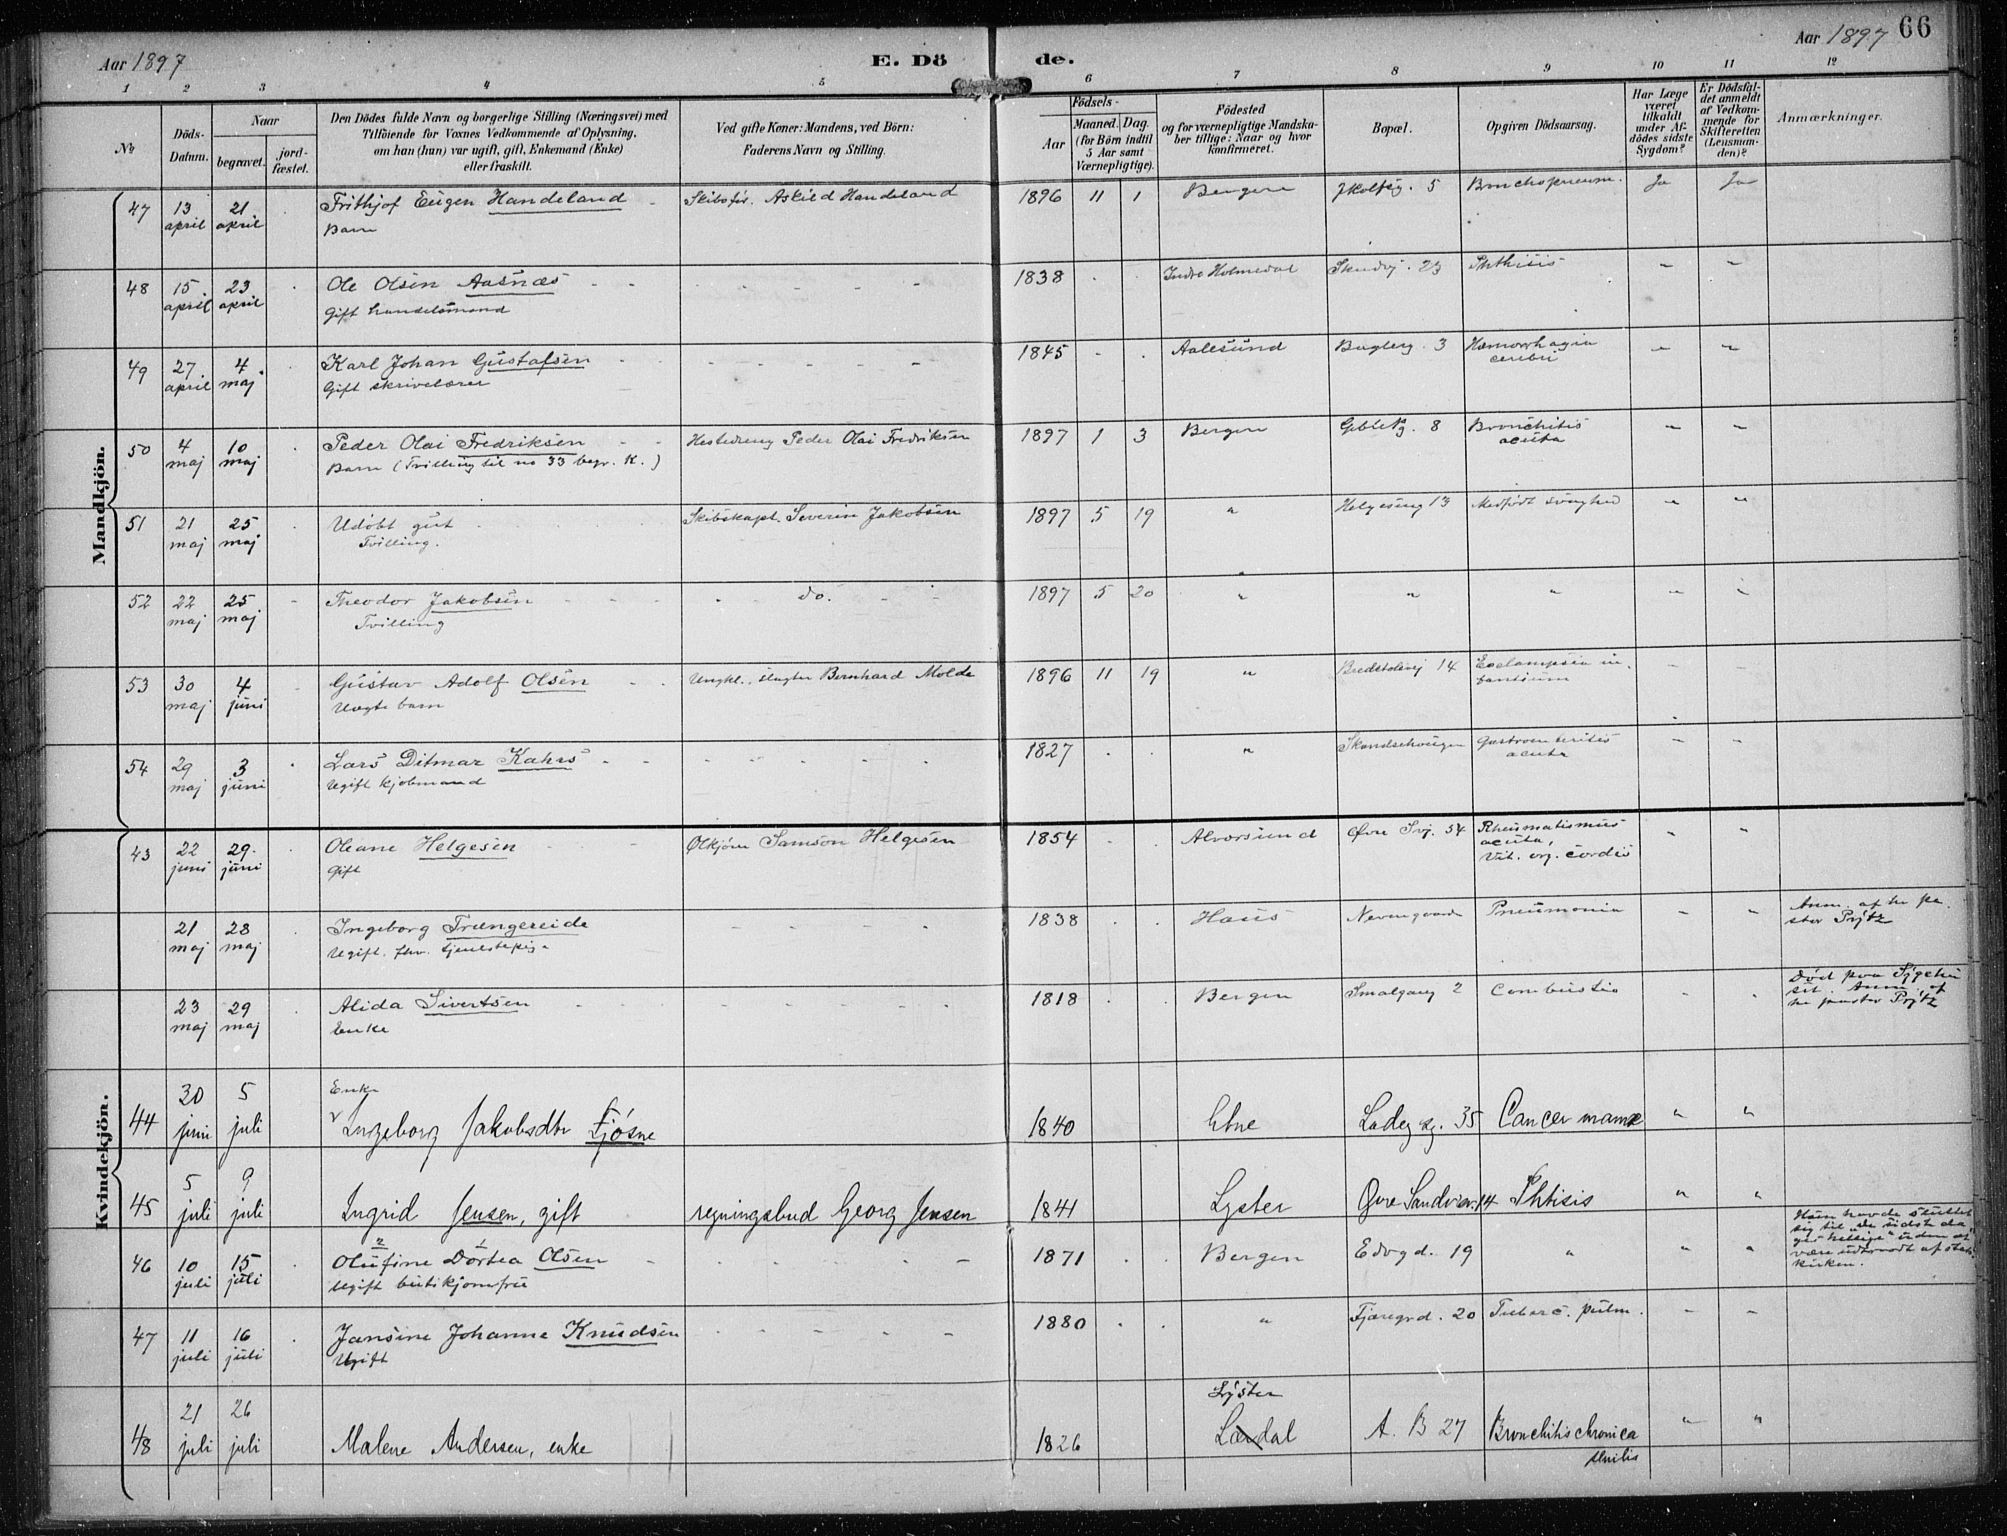 66
Aar 1897
E. Dö
de.
Aar 1897
1 2 3 4 5 6 7 8 9 10 11 12
№
Döds-
Datum.
Naar
begravet.
jord-
fæstet.
Den Dödes fulde Navn og borgerlige Stilling (Næringsvei) med
Tilföiende for Voxnes Vedkommende af Oplysning,
om han (hun) var ugift, gift, Enkemand (Enke)
eller fraskilt.
Ved gifte Koner: Mandens, ved Börn:
Faderens Navn og Stilling.
Födsels-
Aar
Maaned. Dag
(for Børn indtil
5 Aar samt
Værnepligtige).
Födested
og for værnepligtige Mandska-
ber tillige: Naar og hvor
konfirmeret.
Bopæl.
Opgiven Dödsaarsag.
Har Læge
været
tilkaldt
under Af-
dödes sidste
Sygdom?
Er Dödsfal-
det anmeldt
af Vedkom-
mende for
Skifteretten
(Lensman-
den)?
Anmærkninger.
Mandkjön.
47 13 april 21 april Frithjof Eugen Handeland Skibsfør. Askild Handeland 1896 11 1 Bergen 5 Bronchopneum. Ja Ja
Barn
48 15 april 23 april Ole Olsen Aasnæs 1838 Indre Holmedal Skudvj. 23 Phthisis " "
Gift handelsmand
49 27 april 4 maj Karl Johan Gustafsen 1845 Aalesund 3 Hæmorrhagia " "
Gift skrivelærer cerebri
50 4 maj 10 maj Peder Olai Fredriksen Hestedreng Peder Olai Fredriksen 1897 1 3 Bergen 8 Bronchitis " "
Barn (Tvilling til no 33 begr. K.) acuta
51 21 maj 25 maj Udöbt gut Skibskapt. Severin Jakobsen 1897 5 19 " Helgeseng 13 Medfödt svaghed " "
Tvilling.
52 22 maj 25 maj Theodor Jakobsen do. 1897 5 20 " " " " "
Tvilling
53 30 maj 4 juni Gustav Adolf Olsen Ungkl., slagter Bernhard Molde 1896 11 19 " 14 Eclampsia in-
Uægte barn fantium
54 29 maj 3 juni Lars Ditmar Kahrs 1827 " Gastroenteritis
Ugift kjøbmand acuta
Kvindekjön.
43 22 juni 29 juni Oleane Helgesen Ølkjører Samson Helgesen 1854 Alversund Øvre 54 Rheumatismus " "
Gift acuta,
Vit. org. cordis
21 maj 28 maj Ingeborg Trængereide 1838 Haus Nevengaarden Pneumonia Anm. af hr pa-
Ugift. fhv. tjenestepige stor Prÿtz
23 maj 29 maj Alida Sivertsen 1818 Bergen Smalgang 2 Combustio Död paa Sÿgehu-
Enke set. Anm. af
hr pastor Prÿtz
Enke
44 30 juni 5 juli Ingeborg Jakobsdtr Ljøsne 1840 Etne Ladeg. g. 35 Cancer mamæ " "
45 5 juli 9 juli Ingrid Jensen, gift regningsbud Georg Jensen 1841 Lyster Øvre Sandviksv. 14 Phtisis " "
46 10 juli 15 juli Olufine Dörtea Olsen 1871 Bergen Edvgd. 19 " " "
Ugift butikjomfru
Hun havde sluttet
sig til „de sidste da-
ges hellige" uden at
være udtraadt af stats-
kirken.
47 11 juli 16 juli Jansine Johanne Knudsen 1880 " 20 Tuberc. pulm.
Ugift
Lÿster
48 21 juli 26 juli Malene Andersen, enke 1826 Lærdal A. B 27 Bronchitis chronica " "
senilis